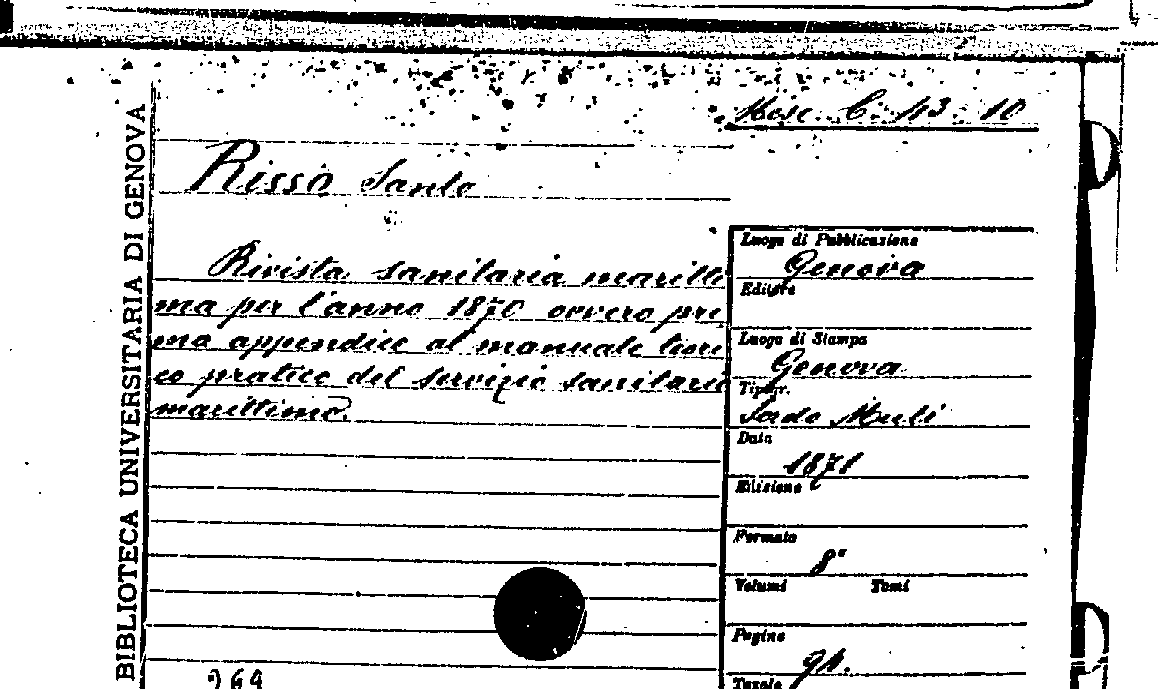 BIBLIOTECA UNIVERSITARIA DI GENOVA
Misc. C. 43. 10
Risso Santo
Rivista sanitaria maritti
ma per l'anno 1870 ovvero pri
ma appendice al manuale teori
co pratico del servizio sanitario
marittimo.
Luogo di Pubblicazione
Genova
Editore
Luogo di Stampa
Genova
Tipogr.
Sordo Muti
Data
1871
Edizione
Formato
8°
Volumi Tomi
Pagine
94.
Tavole
264